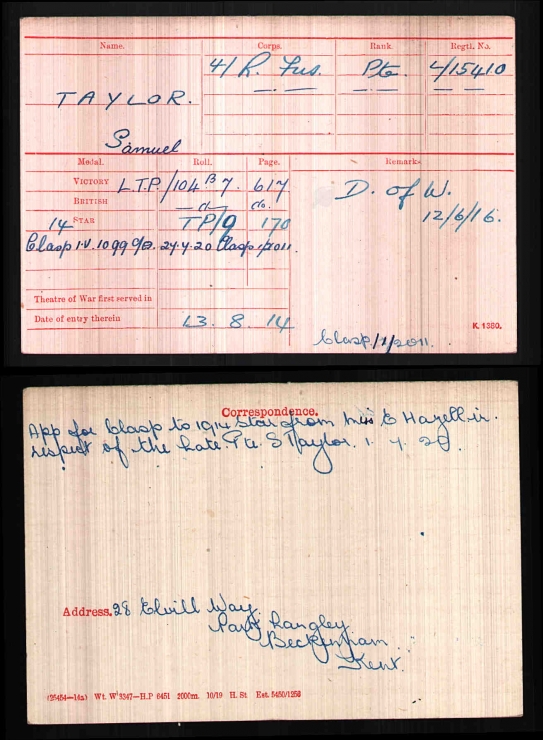 Name.
Corps.
Rank.
Regtl. No.
TAYLOR.
Samuel
4/ R. Fus.
Pte.
L/15410
Medal.
Roll.
Page.
Remarks
VICTORY L.T.P./104 B 7. 617
BRITISH — do — do.
14 STAR TP/9 170
Clasp I.V. 1099 24.4.20 Clasp 1/2011.
D. of W.
12/6/16.
Theatre of War first served in
Date of entry therein 13. 8. 14
K. 1380.
Clasp/1/2011.
Correspondence.
App for Clasp to 1914 Star from E Hazell in
respect of the late Pte. S Taylor. 1. 7. 20.
Address. 28 Elwill Way
Park Langley
Beckenham
Kent.
(26454—14a) Wt. W 3347—H.P 6451 2000m. 10/19 H. St Est. 5450/1256